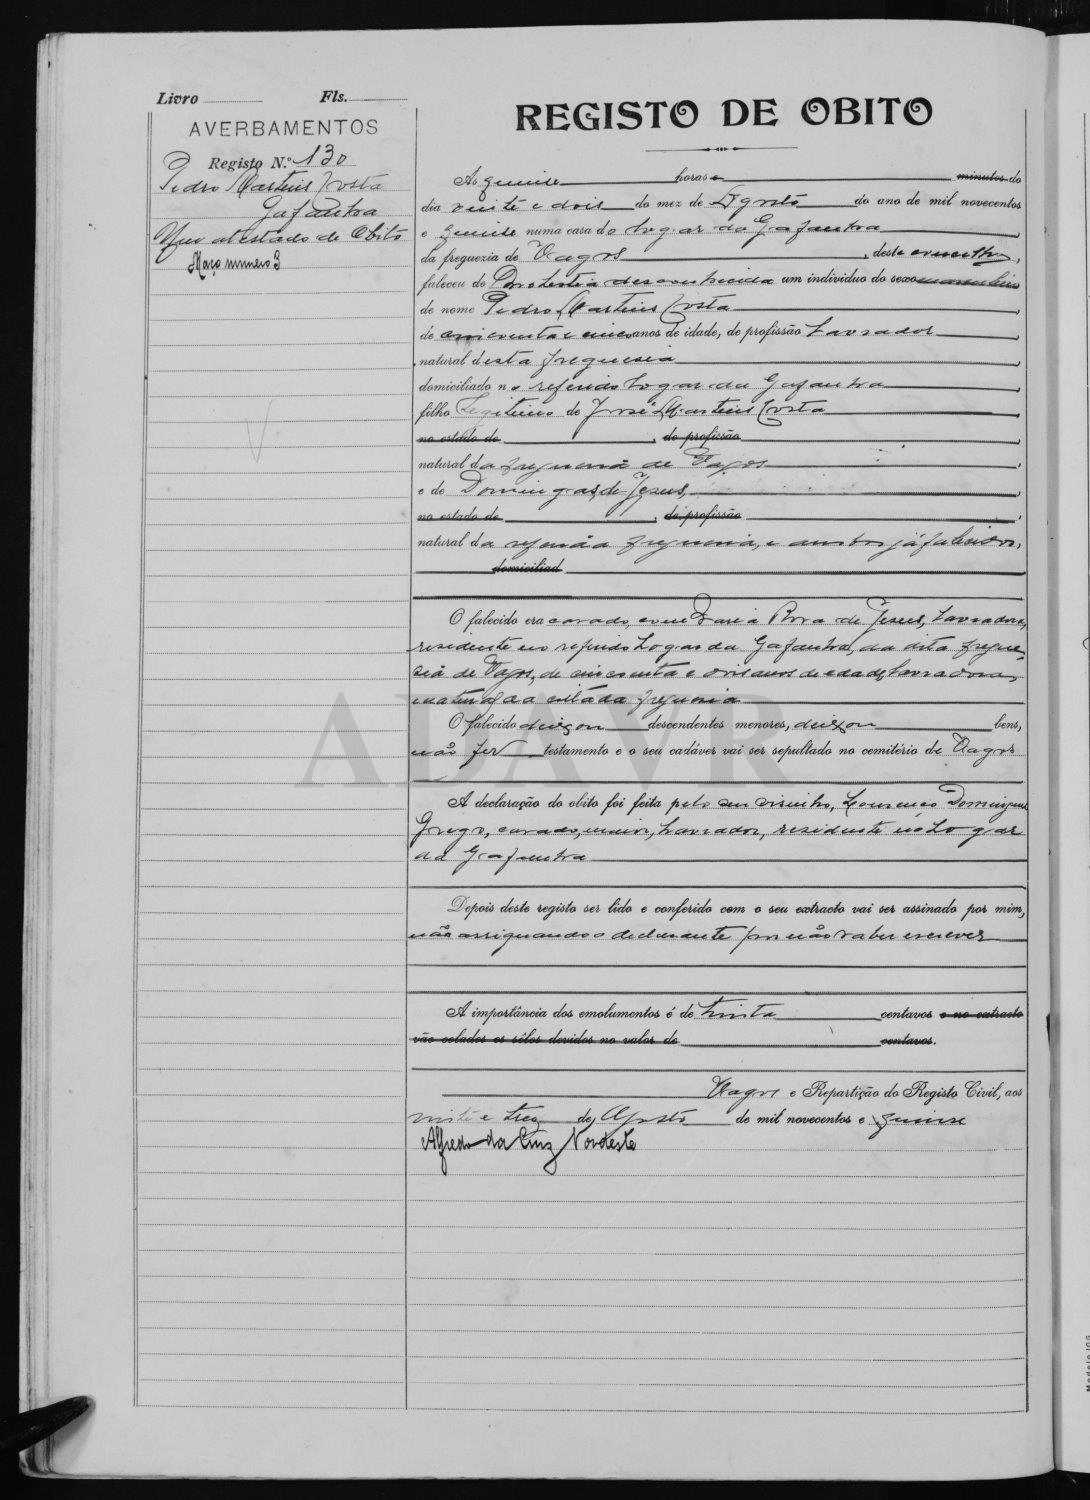 Livro Fls.
AVERBAMENTOS
Registo N.º 130
Pedro Martins Costa
Gafanha
Um atestado de Obito
Março número 3
REGISTO DE OBITO
Ás quinse horas e minutos do
dia vinte e dois do mez de Agosto do ano de mil novecentos
e quinse numa casa do logar da Gafanha
da freguezia de Vagos, deste concelho,
faleceu de Molestia desconhecida um individuo do sexo masculino
de nome Pedro Martins Costa
de cincoenta e cinco anos de idade, de profissão Lavrador
natural desta freguesia
domiciliado no referido Logar da Gafanha
filho Legitimo de José Martins Costa
no estado de , de profissão
natural da freguesia de Vagos
e de Domingas de Jesus,
no estado de , de profissão
natural da referida freguesia, e ambos já falecidos,
domiciliad
O falecido era casado, com Maria Rosa de Jesus, Lavradora,
residente no referido Logar da Gafanha, da dita fregue-
sia de Vagos, de cincoenta e dois anos de edade, Lavradora,
natural da citada freguesia
O falecido deixou descendentes menores, deixou bens,
não fez testamento e o seu cadáver vai ser sepultado no cemitério de Vagos
A declaração do obito foi feita pelo seu visinho, Lourenço Domingues
Grego, casado, maior, Lavrador, residente no Logar
da Gafanha
Depois deste registo ser lido e conferido com o seu extracto vai ser assinado por mim,
não assignando o declarante por não saber escrever
A importância dos emolumentos é de trinta centavos e no extracto
vão colados os sêlos devidos no valor de centavos.
Vagos e Repartição do Registo Civil, aos
vinte e trez de Agosto de mil novecentos e quinse
Alfredo da Cruz Nordeste
ADAVR